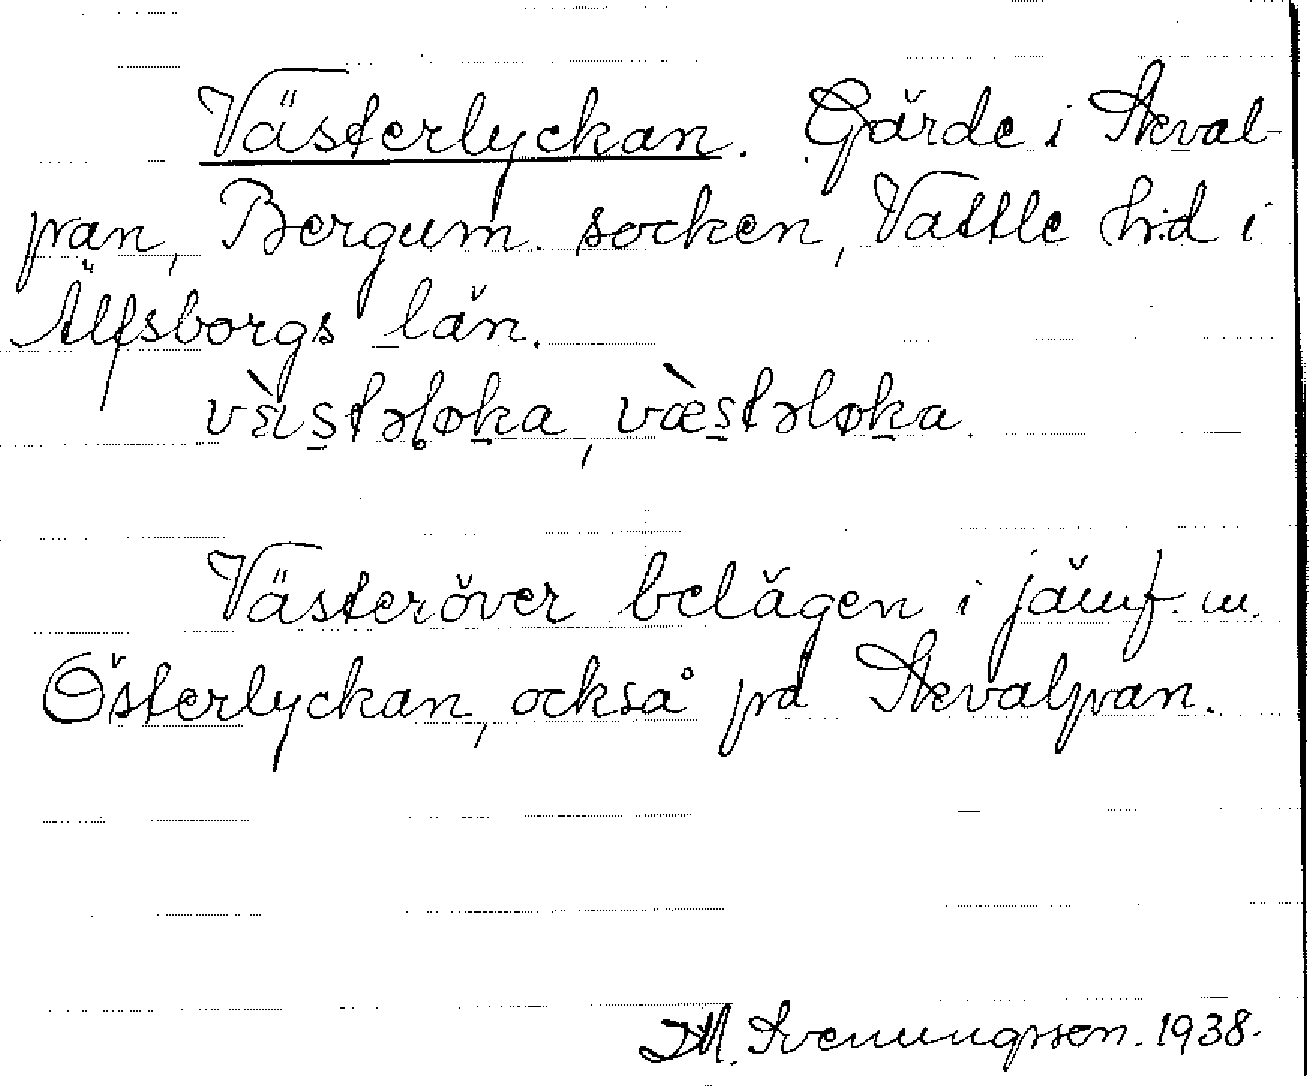 Västerlyckan. Gärde i Steval-
pan, Bergum socken, Vättle hd i
Älfsborgs län.
Västeröver belägen i jämf. m.
Österlyckan, också på Stevalpan.
M. Svenungsson. 1938.